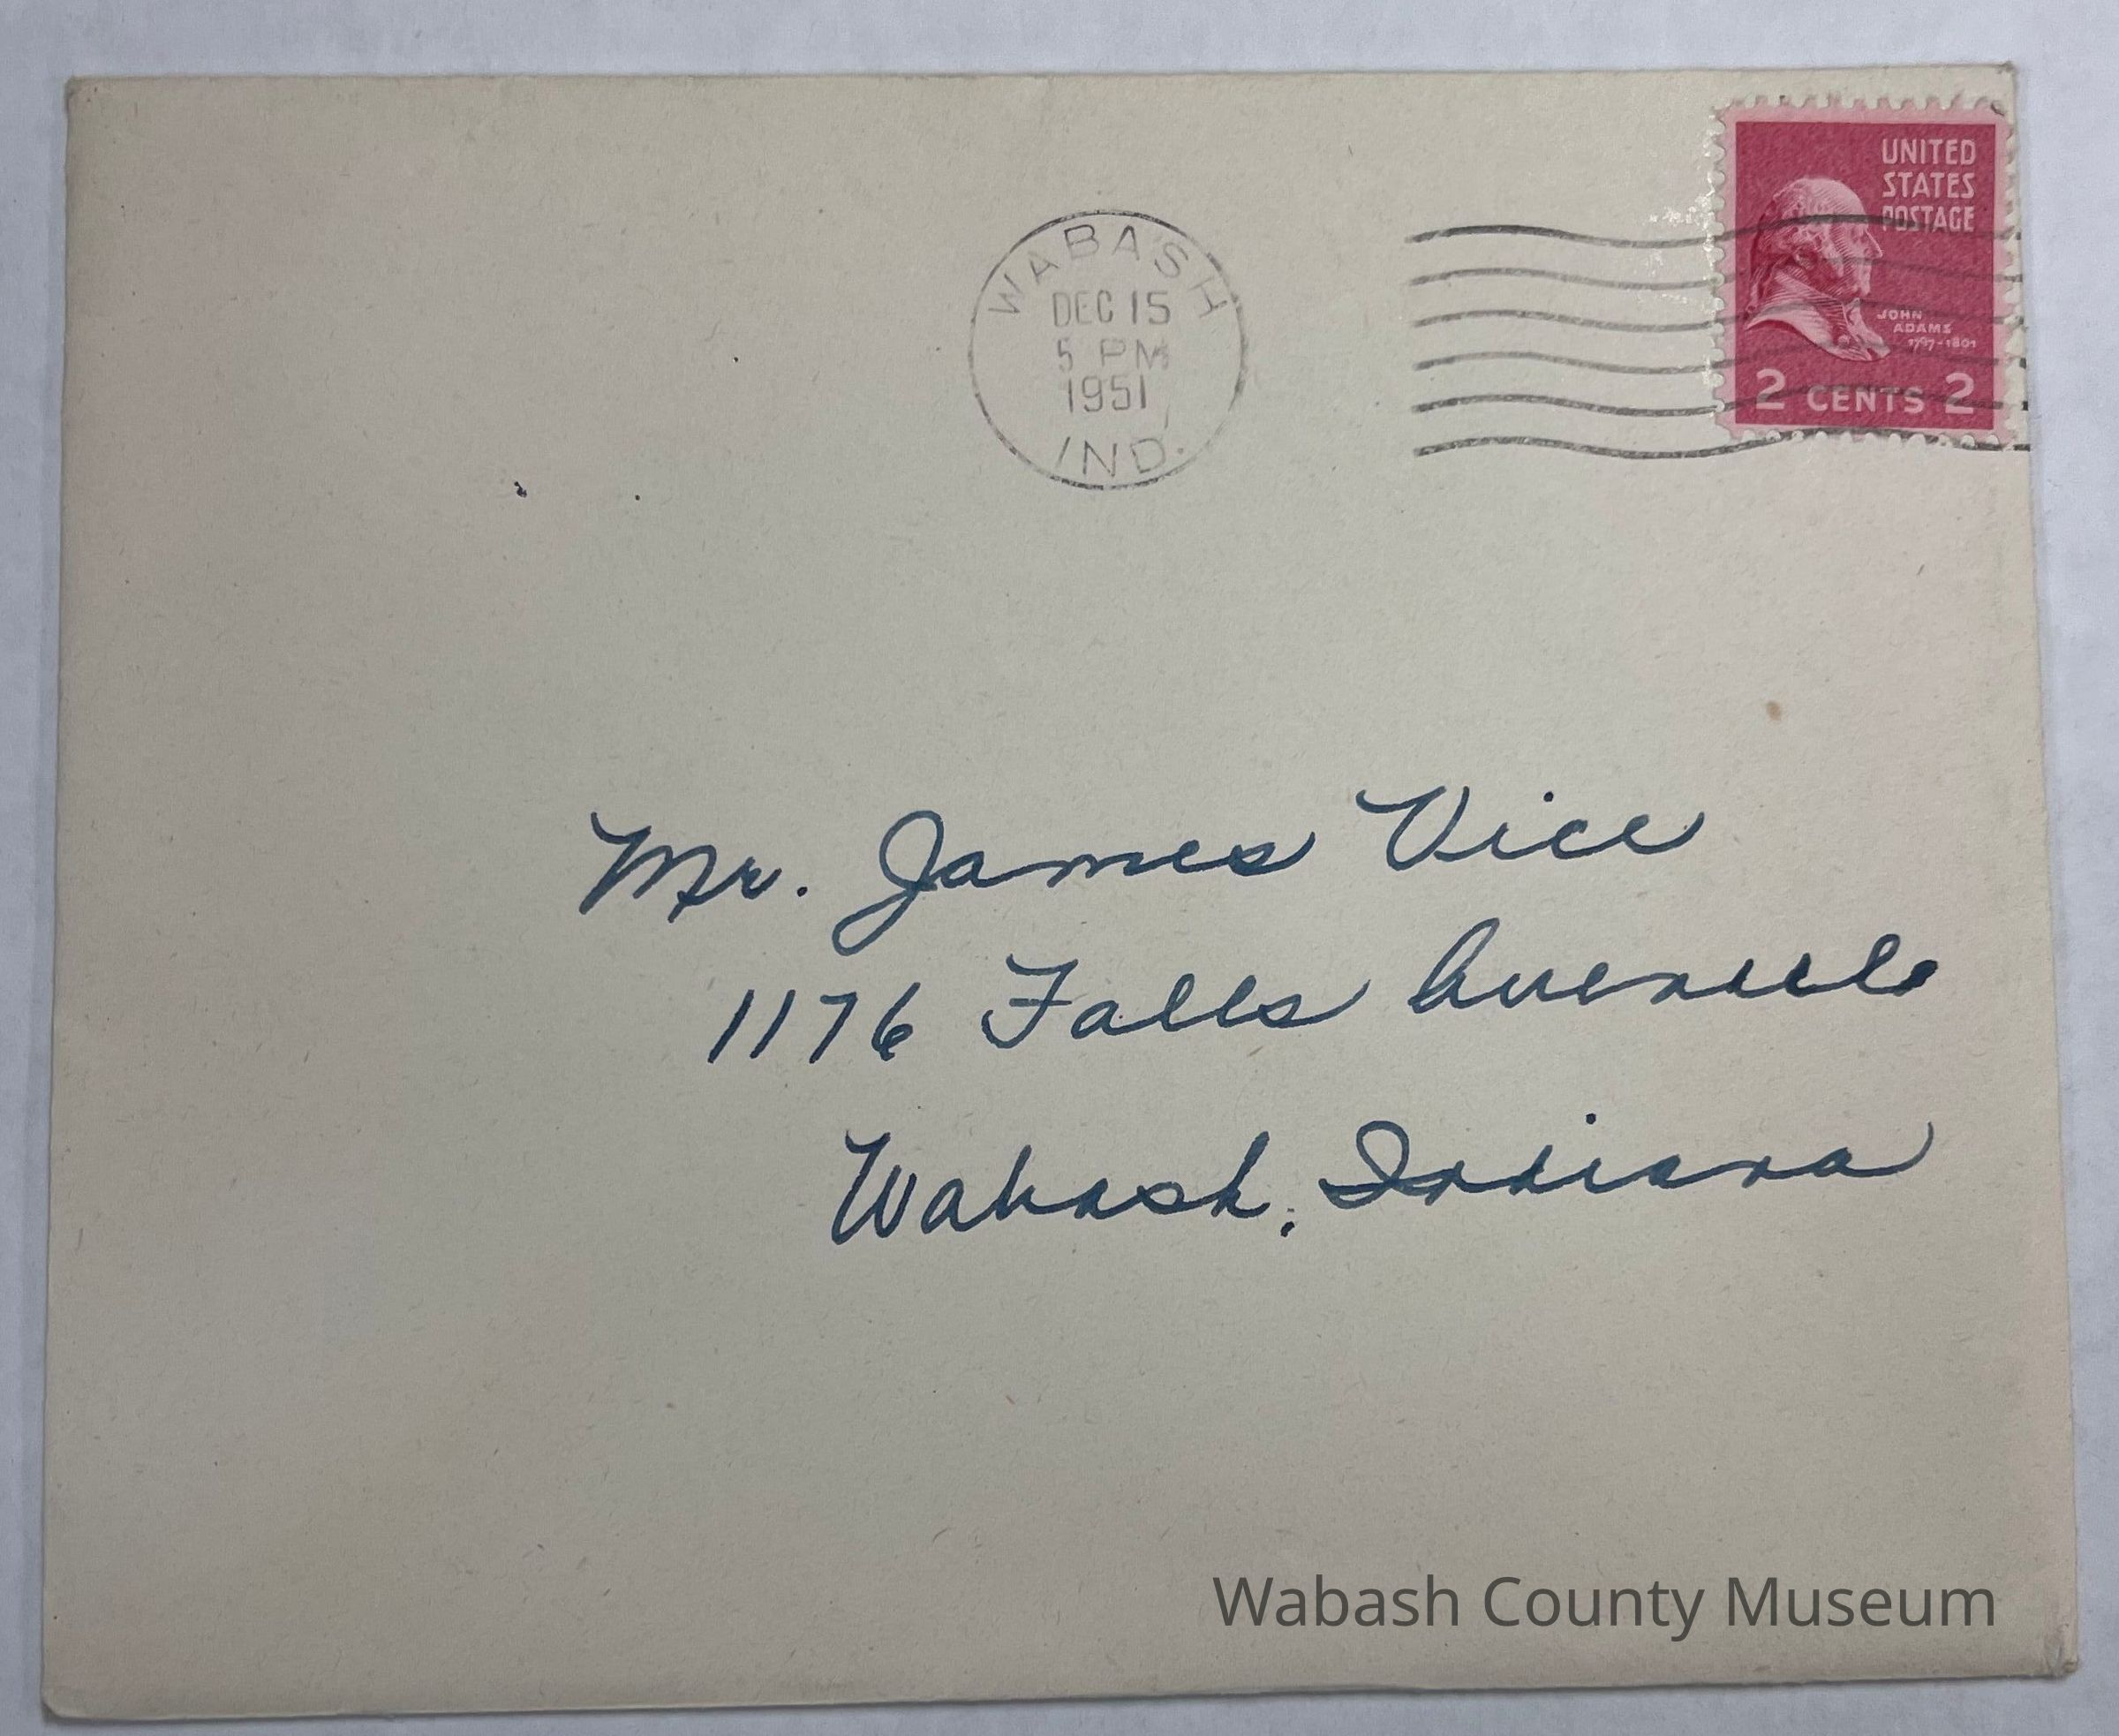 UNITED
STATES
POSTAGE
JOHN
ADAMS
1797-1801
2 CENTS 2
WABASH
DEC 15
5 PM
1951
IND.
Mr. James Vice
1176 Falls Avenue
Wabash, Indiana
Wabash County Museum